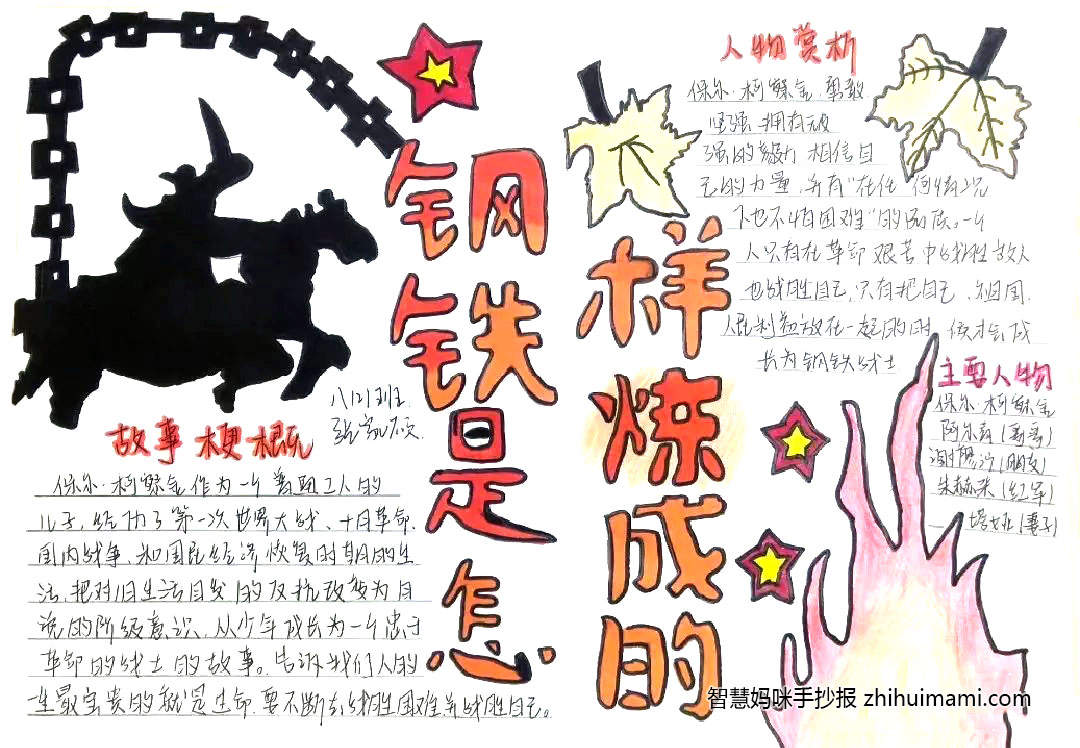 钢铁是怎
样炼成的
八(2)班
故事梗概
保尔·柯察金作为一个普通工人的
儿子,经历了第一次世界大战、十月革命、
国内战争、和国民经济恢复时期的生
活,把对旧生活自发的反抗改变为自
觉的阶级意识,从少年成长为一个忠于
革命的战士的故事。告诉我们人的
一生最宝贵的就是生命,要不断去战胜困难并战胜自己。
人物赏析
保尔·柯察金,勇敢
坚强 拥有顽
强的毅力 相信自
己的力量,并有“在任何情况
下也不怕困难”的品质。一个
人只有在革命艰苦中战胜敌人
也战胜自己,只有把自己、祖国、
人民利益放在一起的时候才会成
长为钢铁战士
主要人物
保尔·柯察金
阿尔青(哥哥)
谢廖沙(朋友)
朱赫来(红军)
塔娅(妻子)
智慧妈咪手抄报 zhihuimami.com